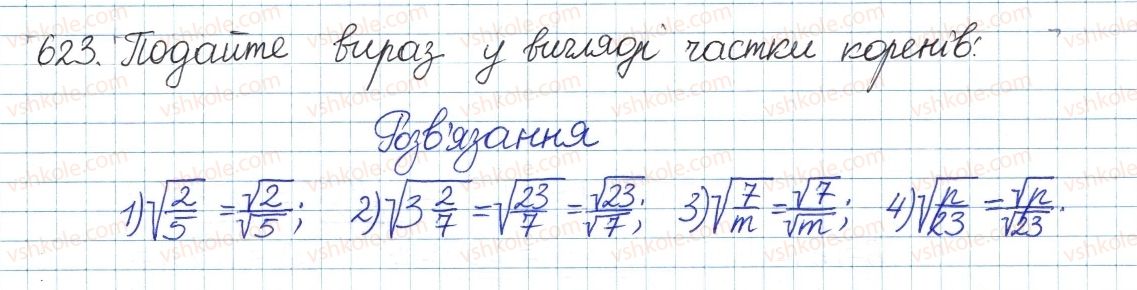 623. Подайте вираз у вигляді частки коренів:
Розв'язання
1) √(2/5) = √2/√5; 2) √(3 2/7) = √(23/7) = √23/√7; 3) √(7/m) = √7/√m; 4) √(p/23) = √p/√23.